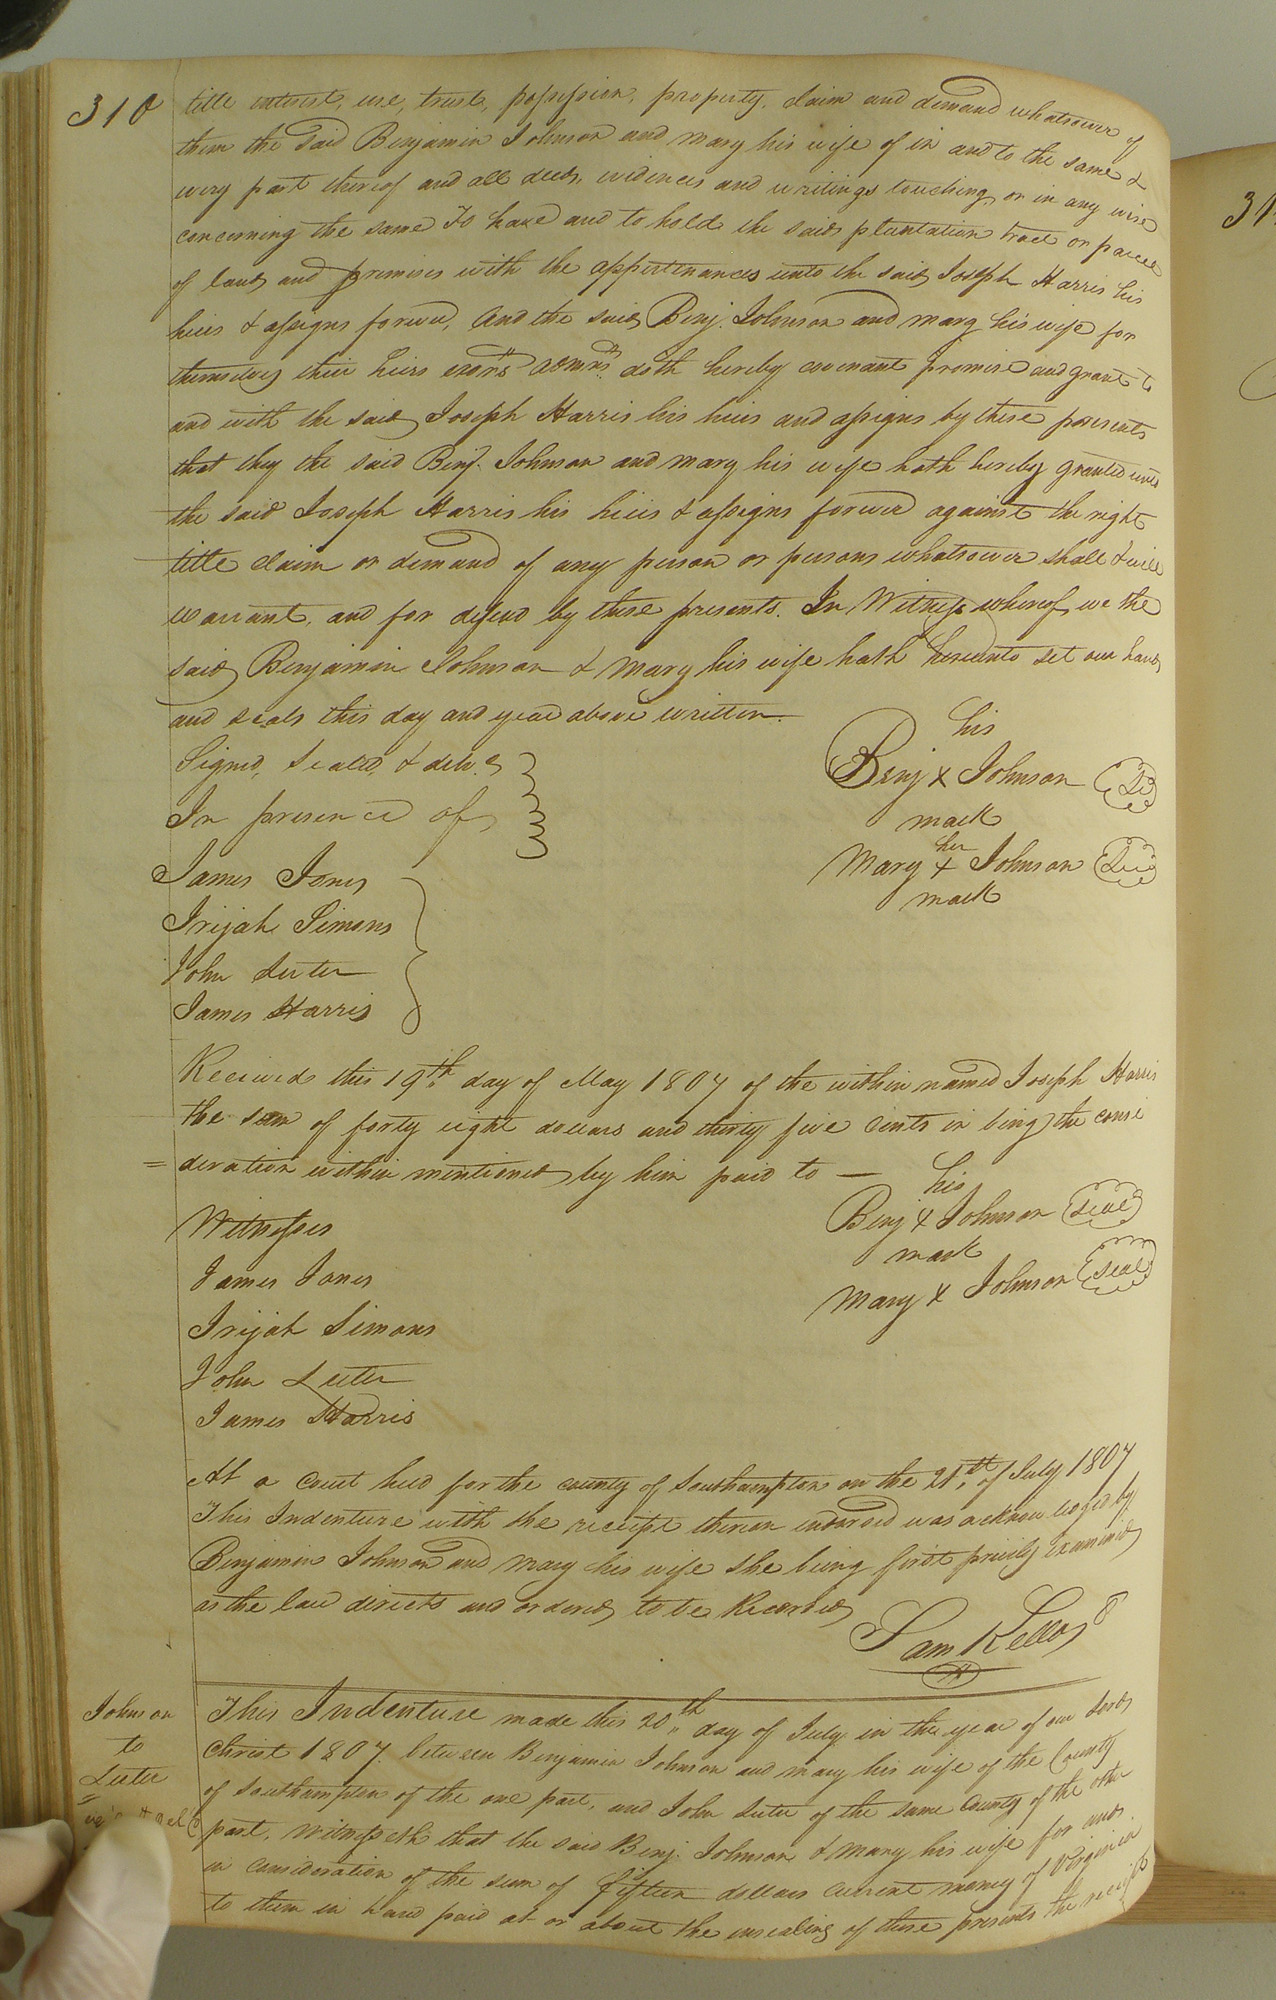 310
title interest, use, trust, possession, property, claim and demand whatsoever of
them the said Benjamin Johnson and Mary his wife of in and to the same &
every part thereof and all deeds, evidences and writings touching, or in any wise
concerning the same To have and to hold the said plantation tract or parcel
of land and premises with the appertenances unto the said Joseph Harris his
heirs & assigns forever, And the said Benj. Johnson and Mary his wife for
themselves their heirs exors admrs doth hereby covenant promise and grant to
and with the said Joseph Harris his heirs and assigns by these presents
that they the said Benj. Johnson and Mary his wife hath hereby granted unto
the said Joseph Harris his heirs & assigns forever against the right
title claim or demand of any person or persons whatsoever shall & will
warrant, and for defend by these presents. In Witness whereof we the
said Benjamin Johnson & Mary his wife hath hereunto set our hands
and seals this day and year above written.
Signed, Sealed, & deld.
In presence of
his
Benj x Johnson
mark
her
Mary + Johnson
mark
James Jones
Irijah Simons
John Leeter
James Harris
Received this 19th day of May 1807 of the within named Joseph Harris
the sum of forty eight dollars and thirty five cents in being the consi
= deration within mentioned by him paid to —
his
Benj x Johnson seal
mark
Mary x Johnson seal
Witnesses
James Jones
Irijah Simons
John Leeter
James Harris
At a Court held for the county of Southampton on the 21st of July 1807
This Indenture with the receipt thereon endorsed was acknowledged by
Benjamin Johnson and Mary his wife she being first privily examined
as the law directs and ordered to be Recorded
Sam Kello
Johnson
to
Leeter
This Indenture made this 20th day of July in the year of our Lord
Christ 1807 between Benjamin Johnson and Mary his wife of the County
of Southampton of the one part, and John Leeter of the same County of the other
part, Witnesseth that the said Benj. Johnson & Mary his wife for and
in consideration of the sum of fifteen dollars current money of Virginia
to them in hand paid at or about the ensealing of these presents the receipt
31